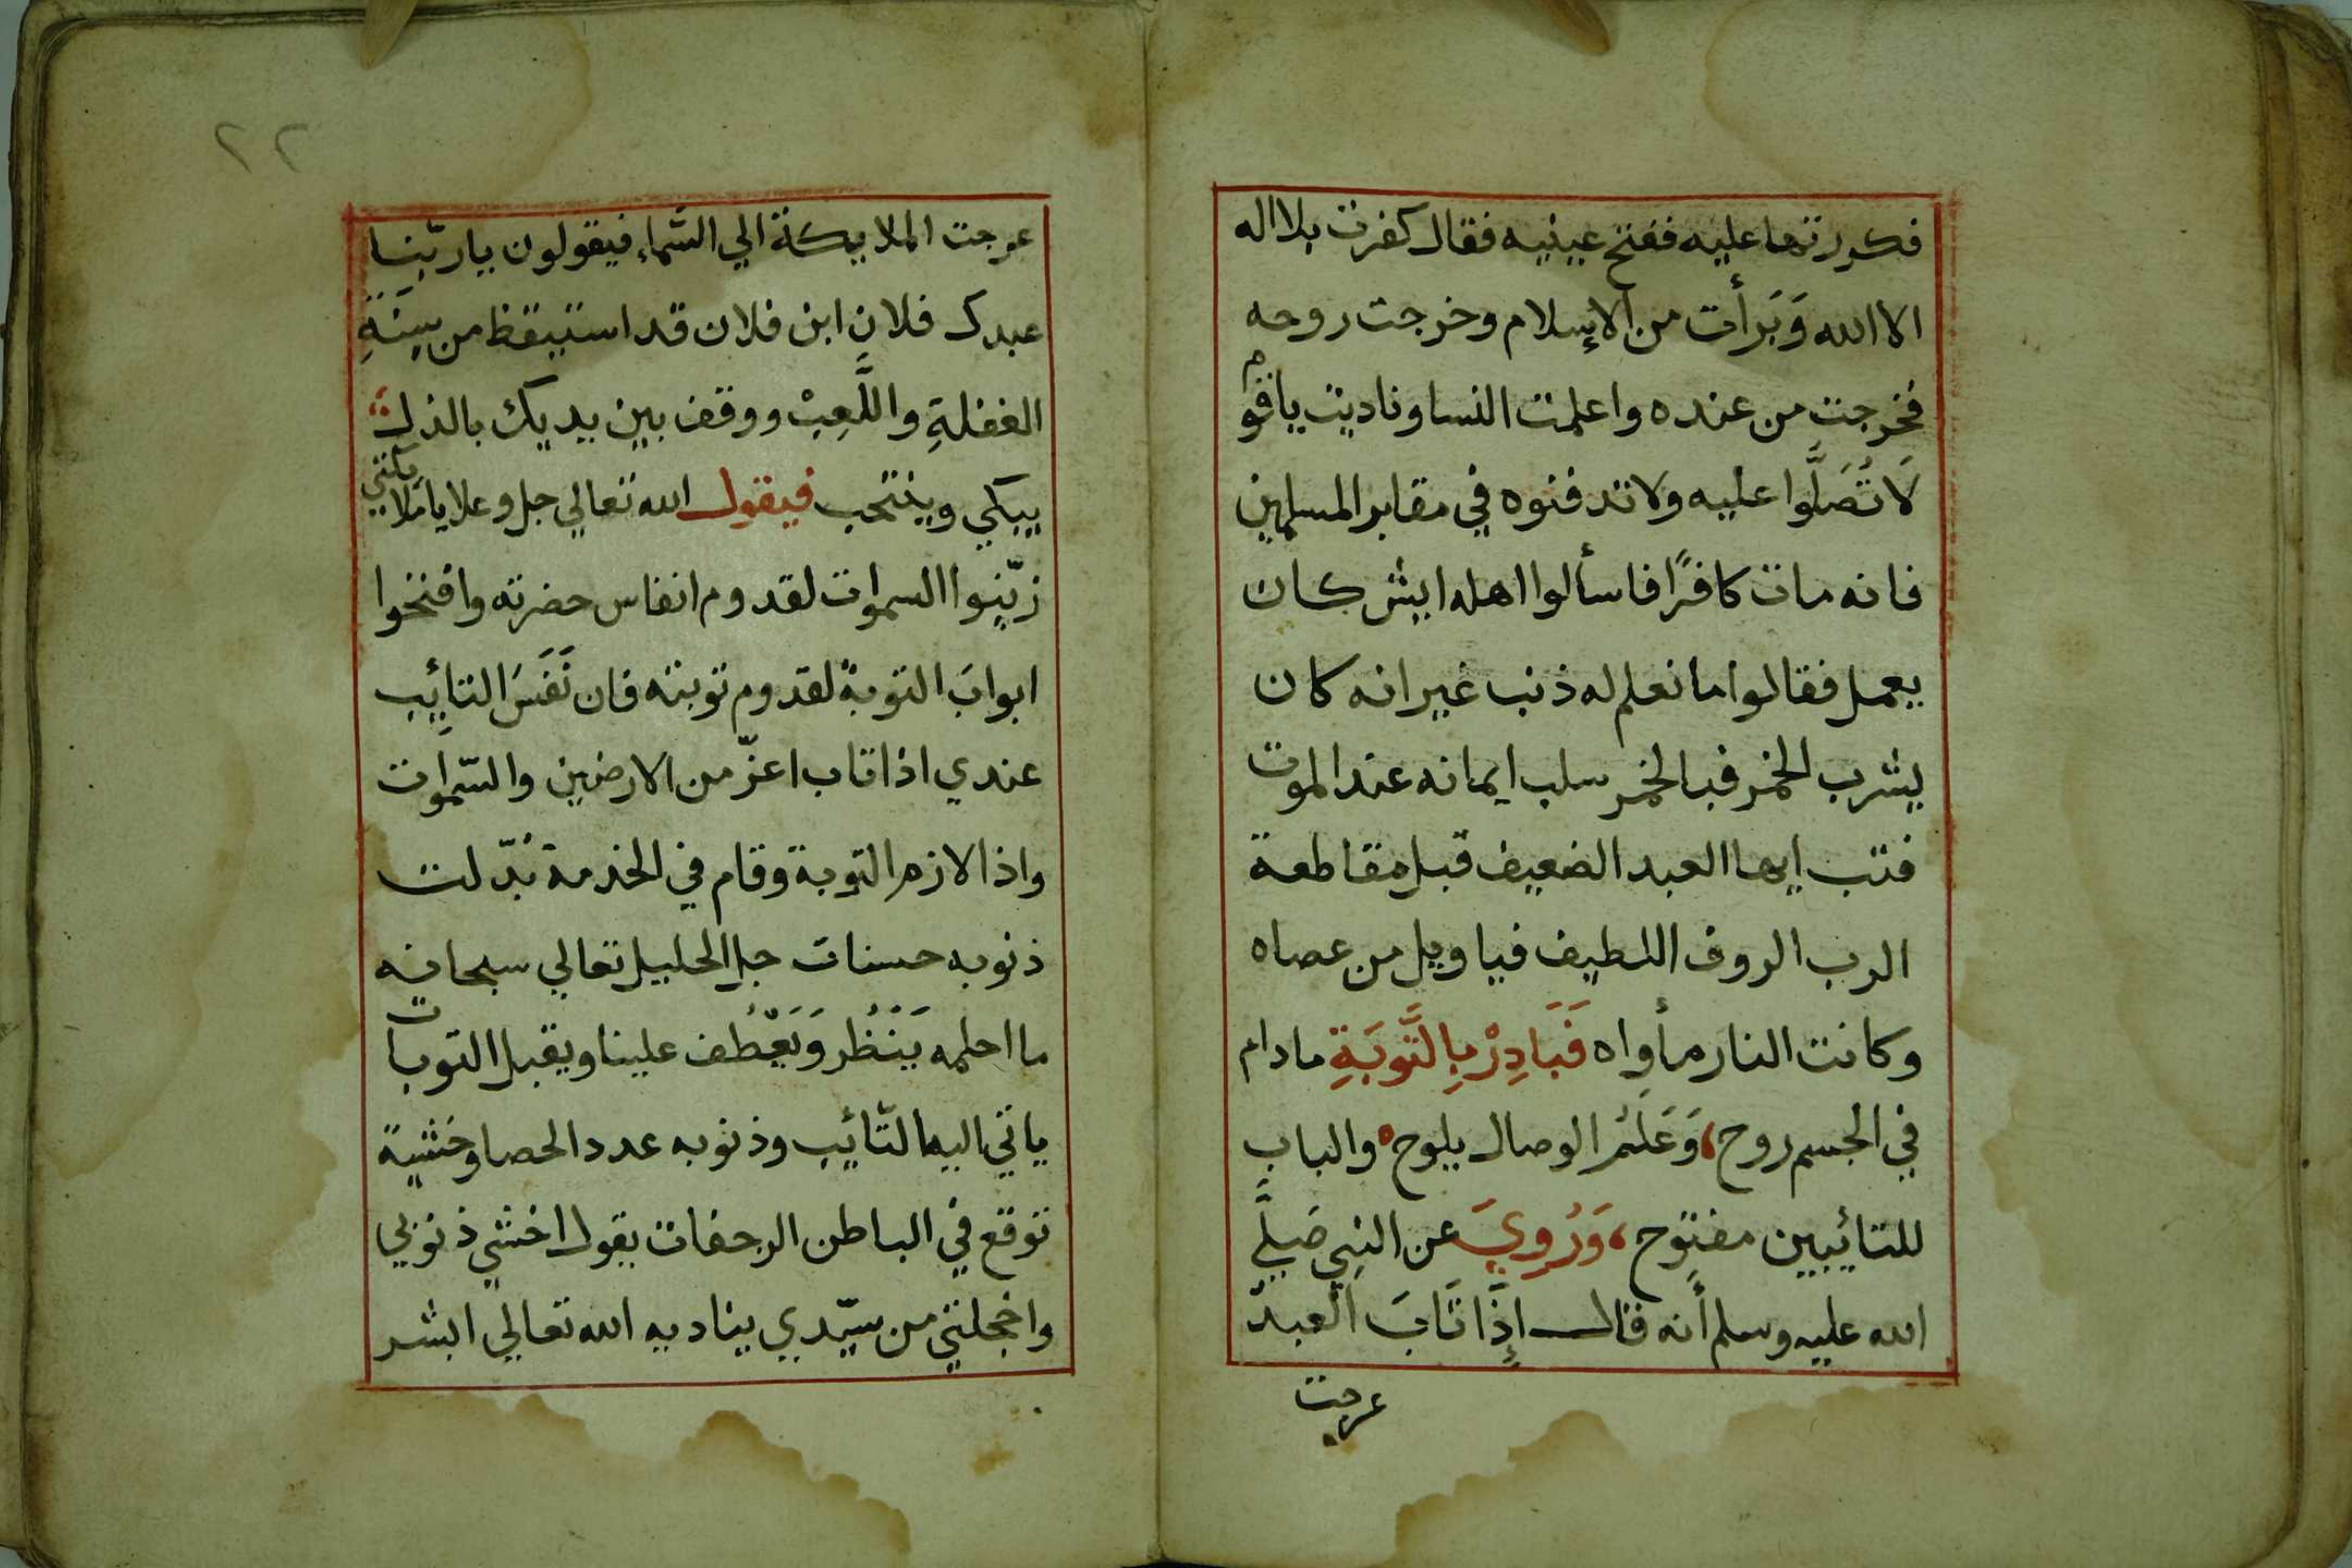 فكررتها عليه ففتح عينيه فقال كفرت بلا اله
الا الله وَبَرأت من الإسلام وخرجت روحه
فخرجت من عنده واعلمت النسا وناديت ياقوم
لَا تُصَلَّوا عليه ولا تدفنوه في مقابر المسلمين
فانه مات كافرًا فاسألوا اهله ايش كان
يعمل فقالوا ما نعلم له ذنب غير انه كان
يشرب الخمر فبالخمر سلب ايمانه عند الموت
فتب ايها العبد الضعيف قبل مقاطعة
الرب الروف اللطيف فيا ويل من عصاه
وكانت النار مأواه فَبَادِرْ بِالتَّوبَةِ مادام
في الجسم روح، وَعَلَمُ الوصال يلوح ه والباب
للتائيبين مفتوح، وَرُوِيَ عن النبي صَلَّي
الله عليه وسلم أنه قال إِذَّا تَابَ العبد
عرجت
٢٢
عرجت الملايكة الي السَّماء فيقولون ياربّنا
عبدك فلان ابن فلان قد استيقظ من سِنَةِ
الغفلةِ واللَّعِبْ ووقف بين يديك بالذل
يبكي وينتحب فيقول الله تعالي جل وعلا ياملايكتي
زيّنوا السموات لقدوم انفاس حضرته وافتحوا
ابوابَ التوبة لقدوم توبته فان نَفَسَ التائِب
عندي اذا تاب اعزّ من الارضين والسّموات
واذا لازم التوبة وقام في الخدمة بُدّلت
ذنوبه حسنات جل الجليل تعالي سبحانه
ما احلمه يَنْظُر وَيَعْطُف علينا ويقبل التوبات
ياتي اليه التّائِب وذنوبه عدد الحصا وخشية
توقع في الباطن الرجفات يقول اخشي ذنوبي
واخجلتي من سيّدي يناديه الله تعالي ابشر